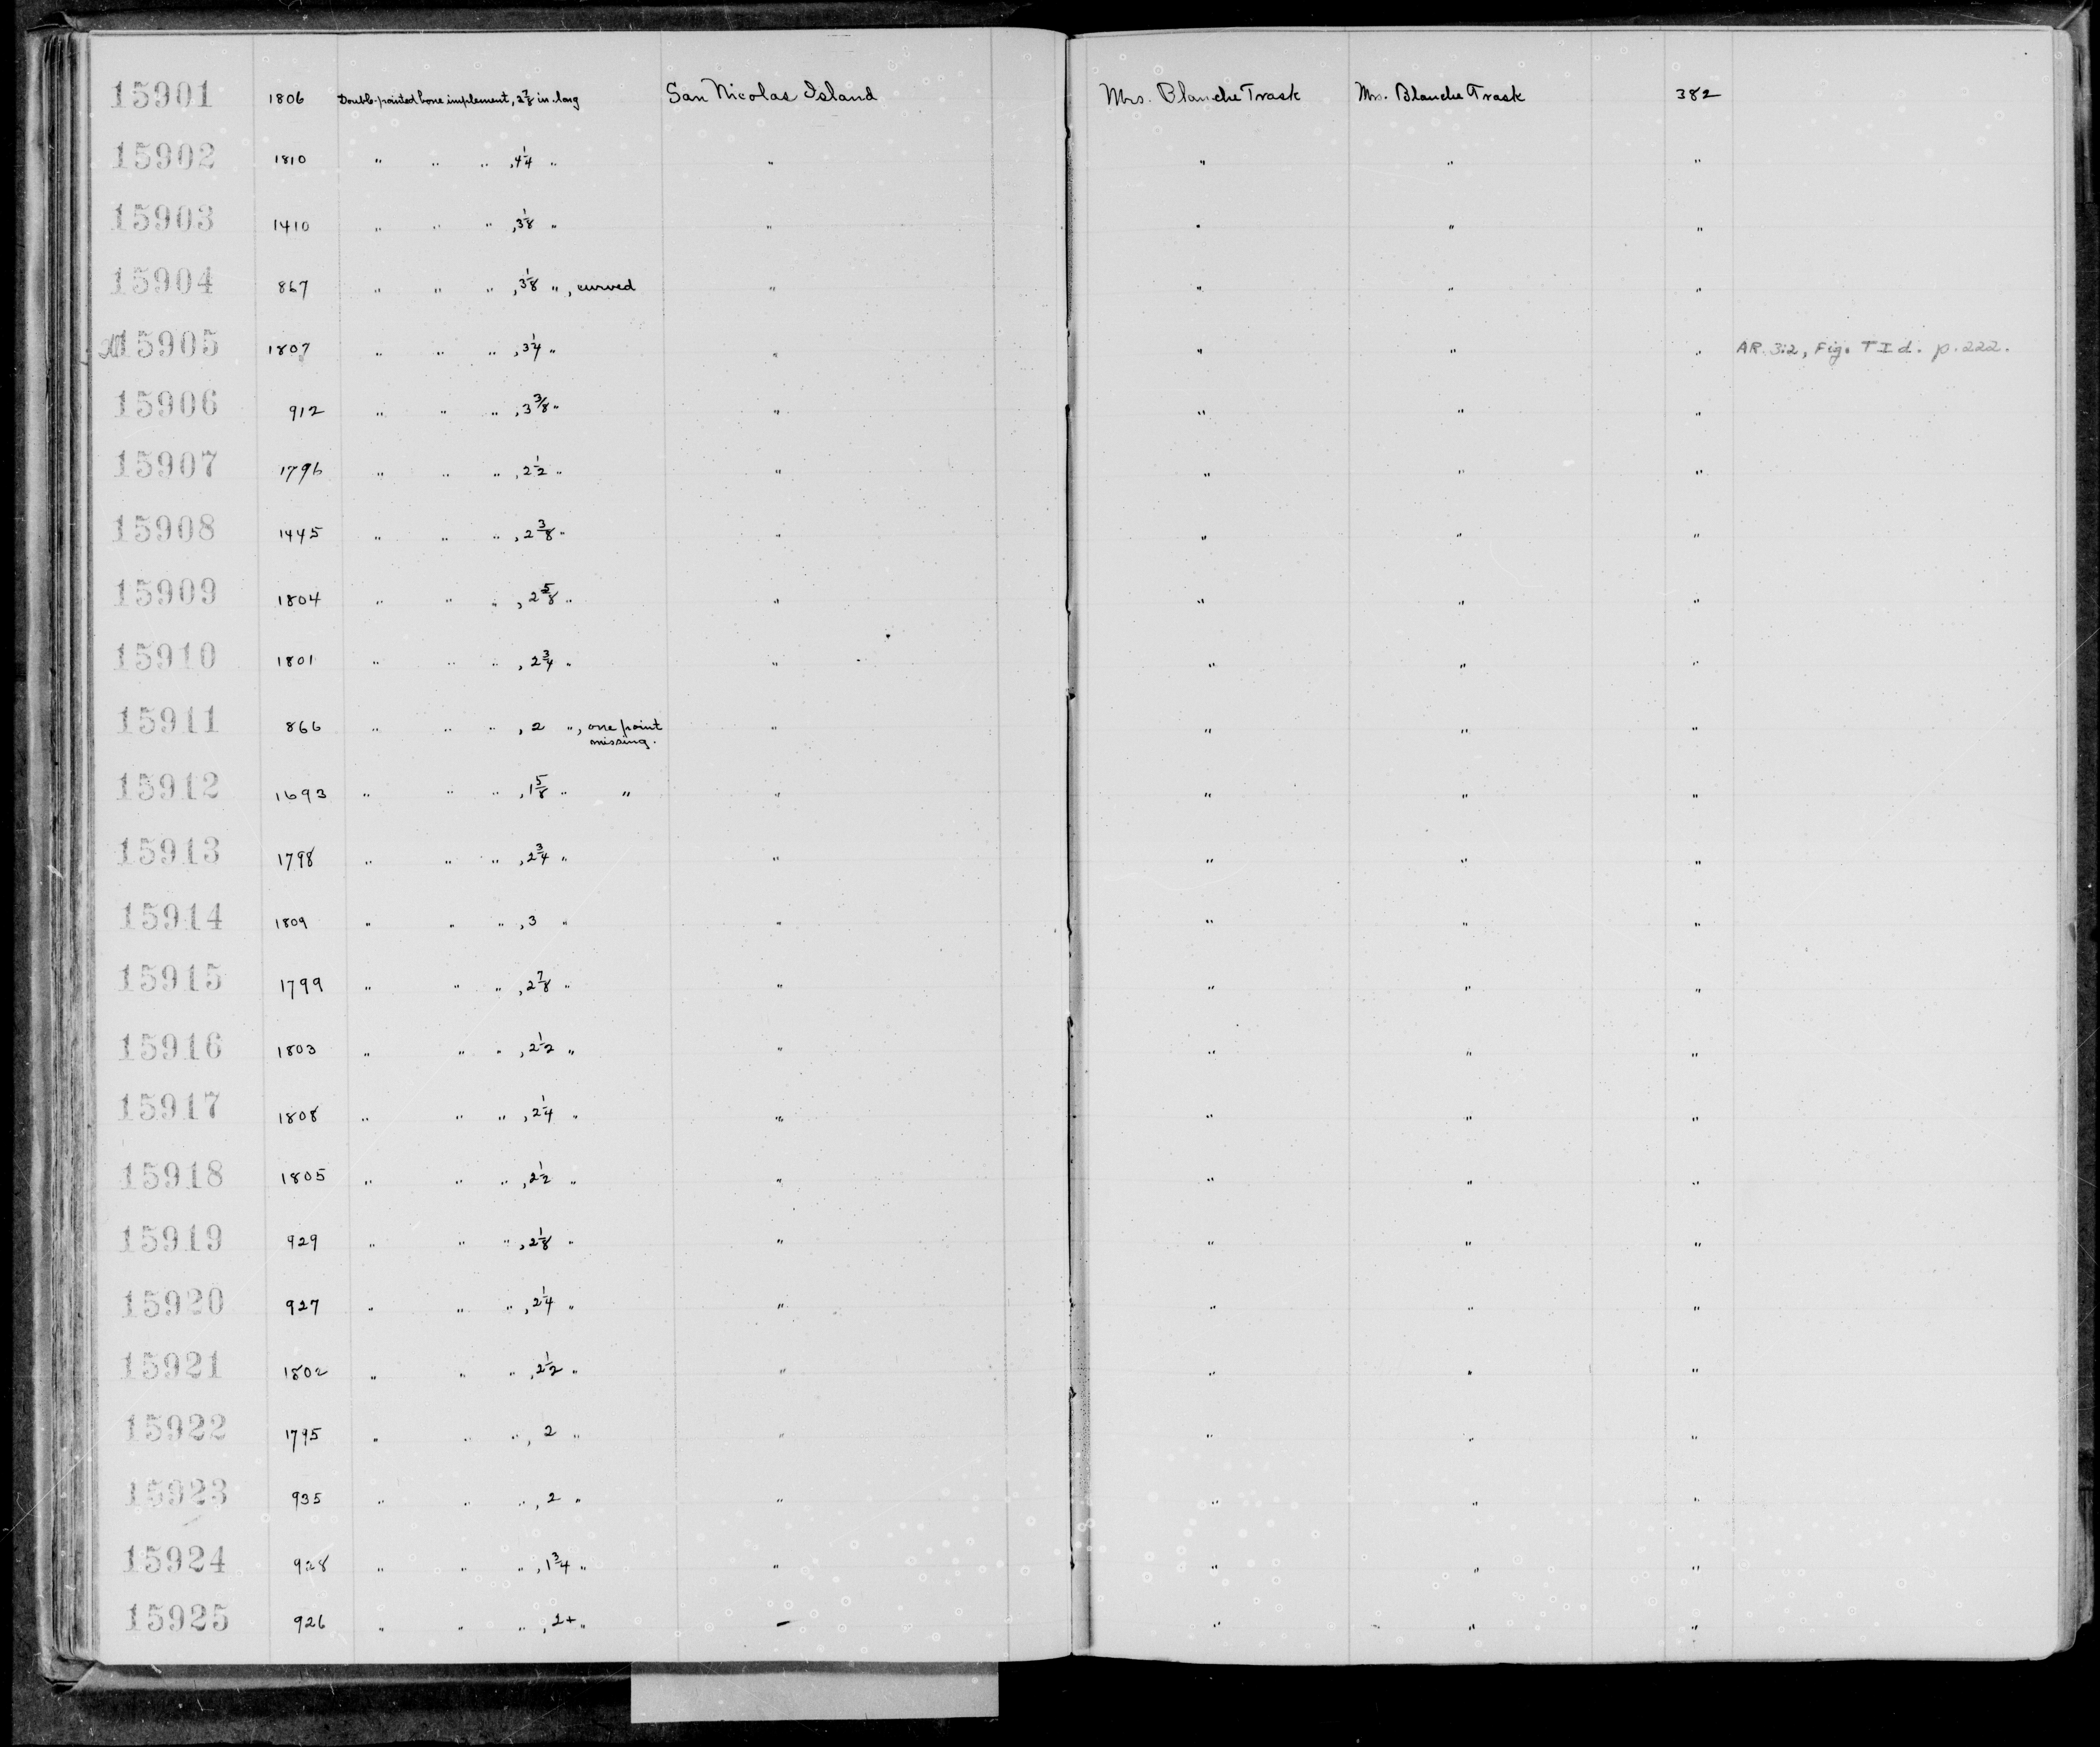 15901 1806 Double-pointed bone implement, 2 7/8 in. long San Nicolas Island Mrs. Blanche Trask Mrs. Blanche Trask 382
15902 1810 " " " , 4 1/4 " " " " "
15903 1410 " " " , 3 1/8 " " " " "
15904 867 " " " , 3 1/8 " , curved " " " "
15905 1807 " " " , 3 1/4 " " " " " AR. 3:2, Fig. T I d. p. 222.
15906 912 " " " , 3 3/8 " " " " "
15907 1796 " " " , 2 1/2 " " " " "
15908 1445 " " " , 2 3/8 " " " " "
15909 1804 " " " , 2 5/8 " " " " "
15910 1801 " " " , 2 3/4 " " " " "
15911 866 " " " , 2 " , one point " " " "
missing.
15912 1693 " " " , 1 5/8 " " " " " "
15913 1798 " " " , 2 3/4 " " " " "
15914 1809 " " " , 3 " " " " "
15915 1799 " " " , 2 7/8 " " " " "
15916 1803 " " " , 2 1/2 " " " " "
15917 1808 " " " , 2 1/4 " " " " "
15918 1805 " " " , 2 1/2 " " " " "
15919 929 " " " , 2 1/8 " " " " "
15920 927 " " " , 2 1/4 " " " " "
15921 1802 " " " , 2 1/2 " " " " "
15922 1795 " " " , 2 " " " " "
15923 935 " " " , 2 " " " " "
15924 928 " " " , 1 3/4 " " " " "
15925 926 " " " , 2+ " – " " "